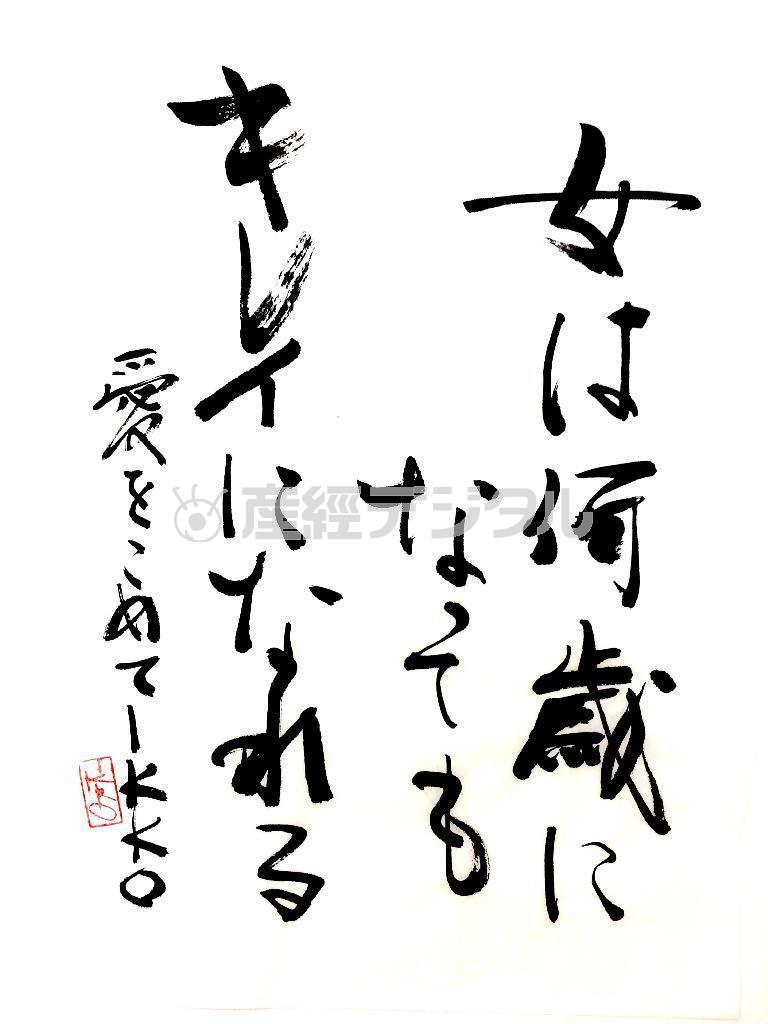 女は何歳に
なっても
キレイになれる
愛をこめてIKKO
産経デジタル